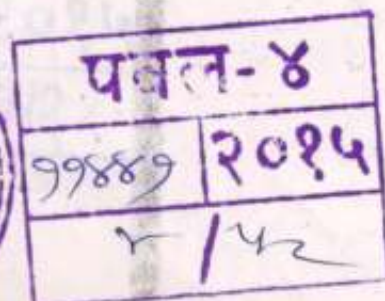 पवल-४
११४४१ २०१५
/ ५२